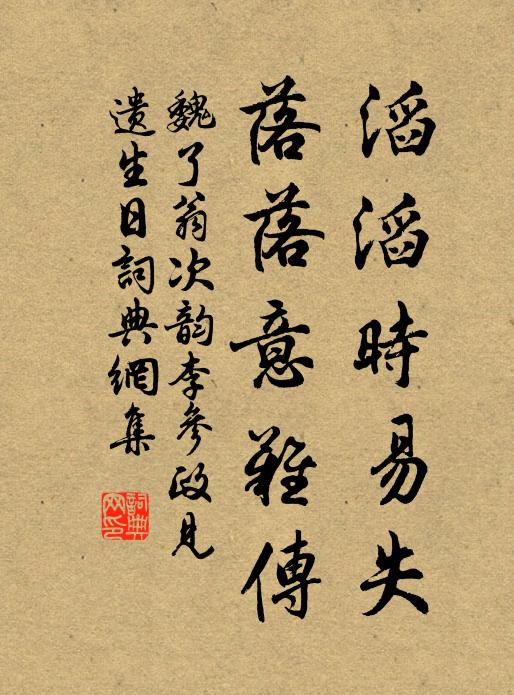 滔滔時易失
落落意難傳
魏了翁次韵李參政見
遺生日詞典網集
詞典網印